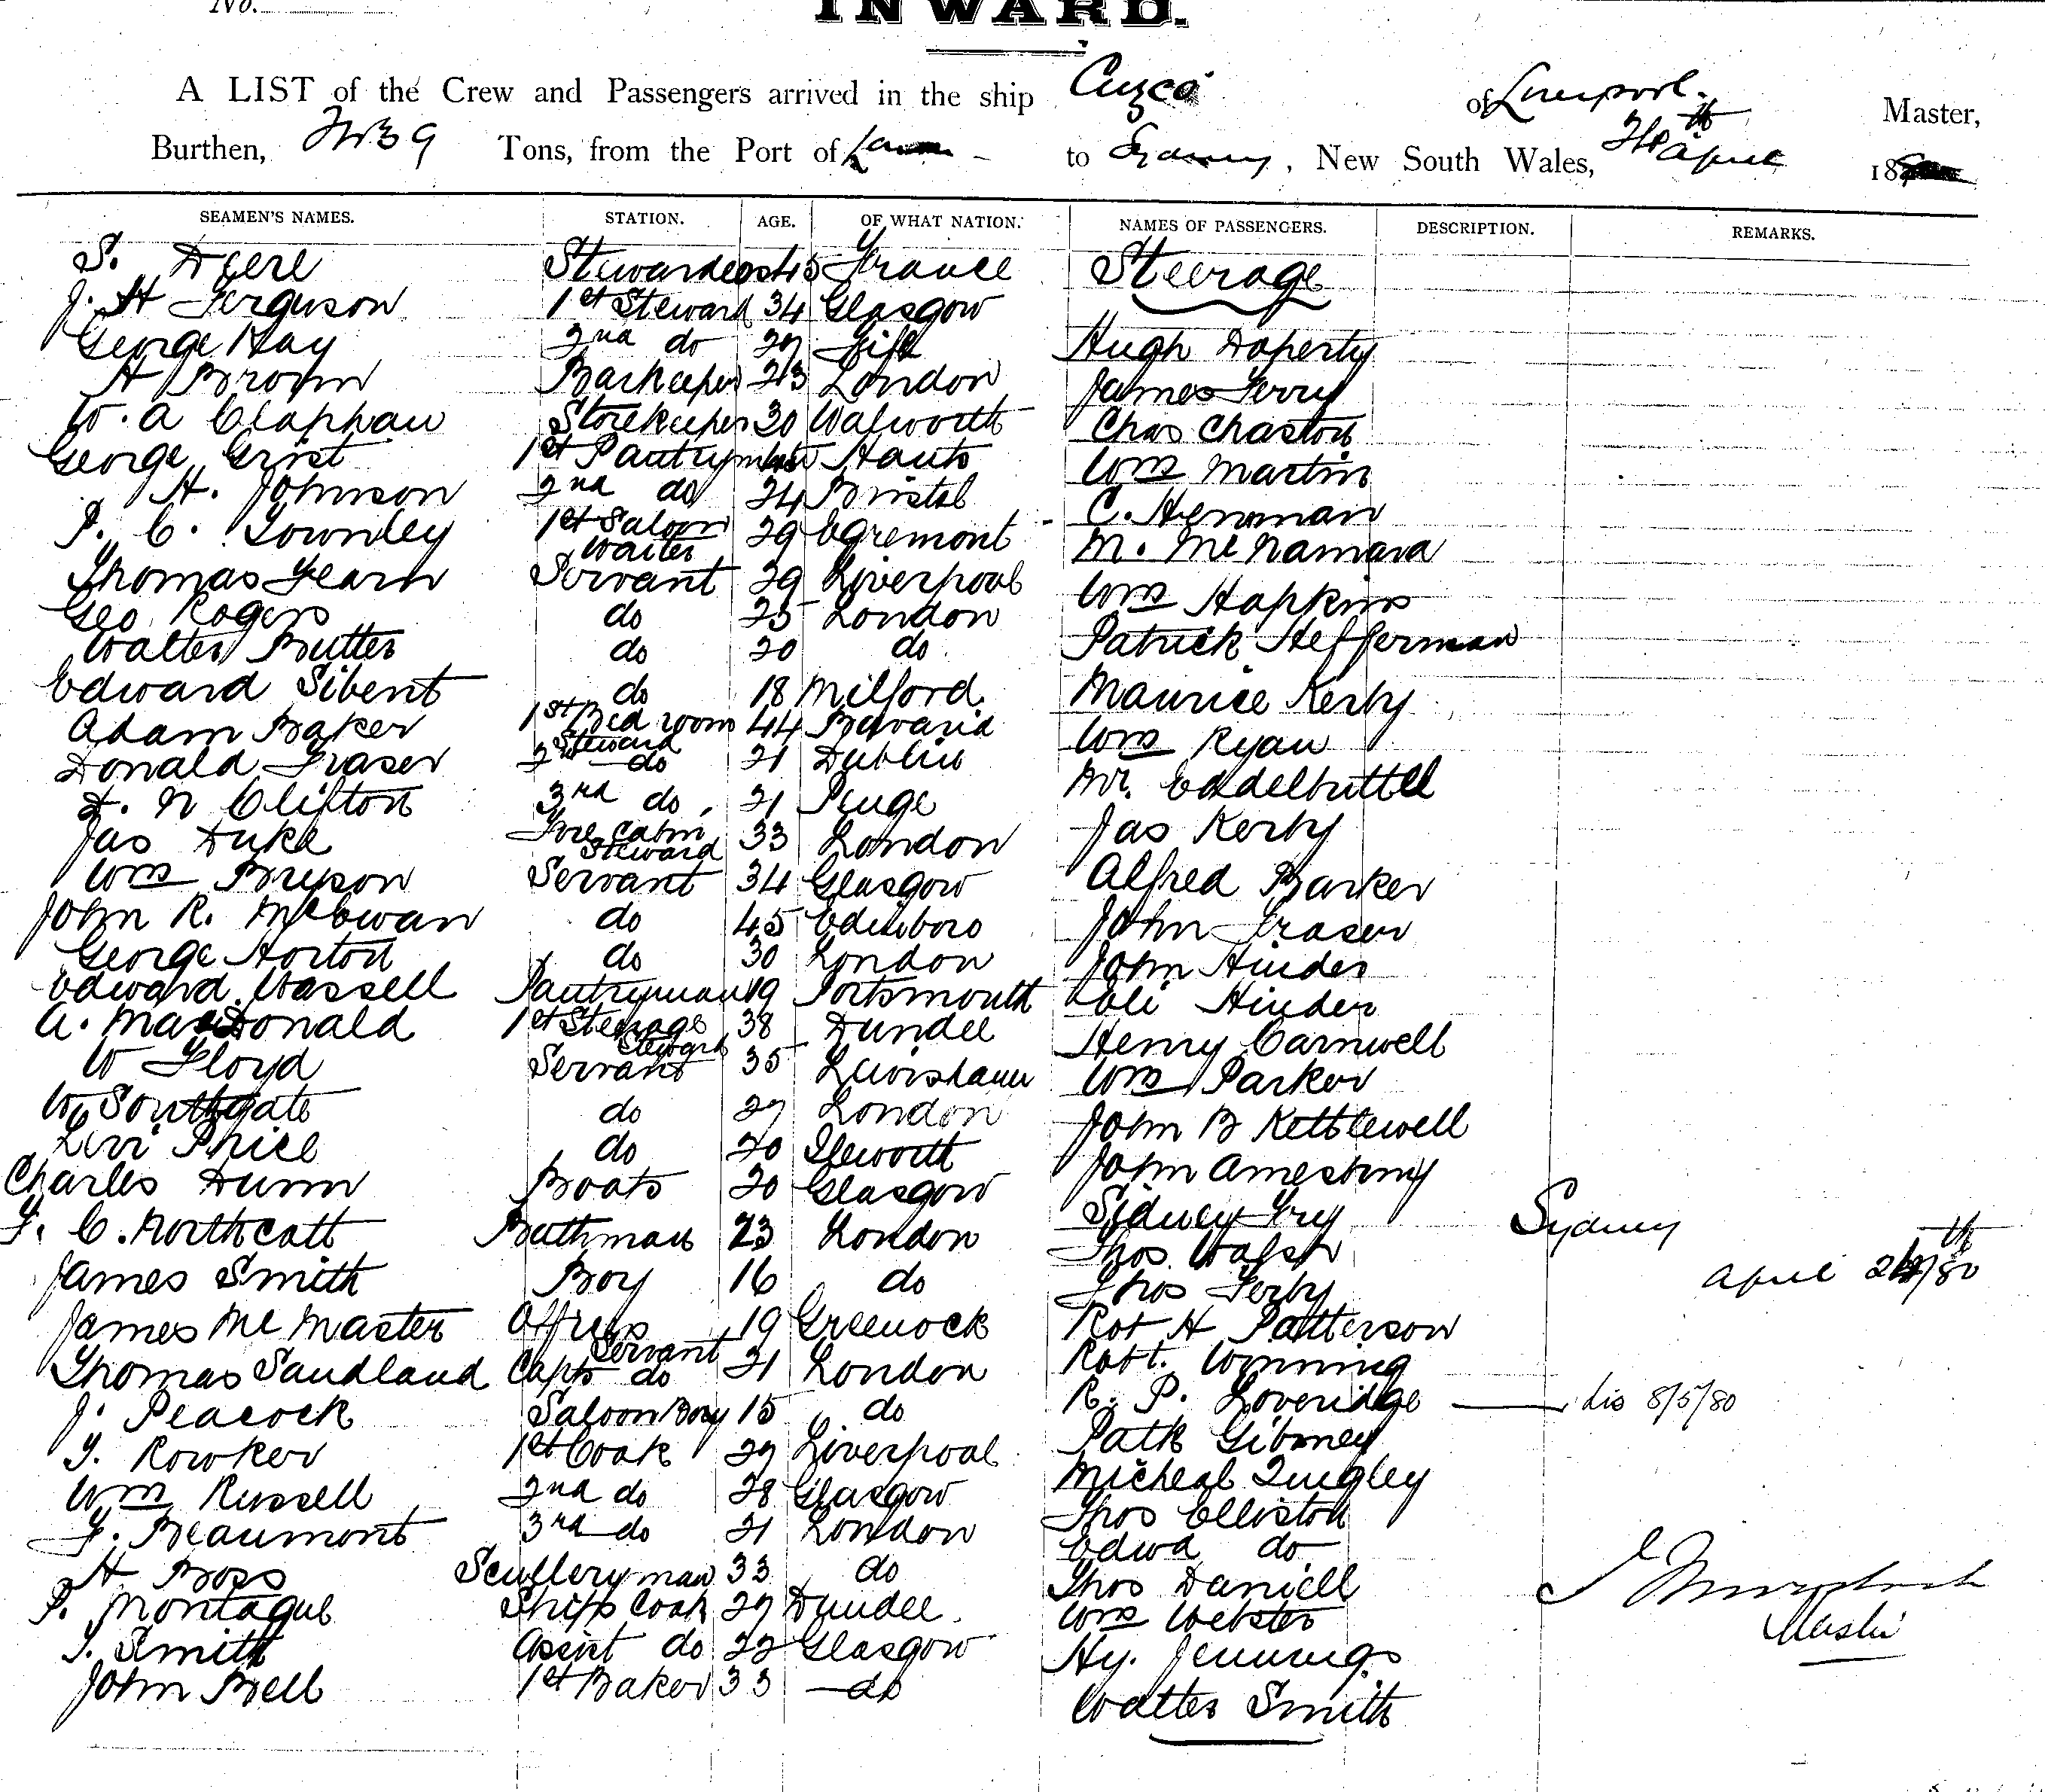 No.
INWARD.
A LIST of the Crew and Passengers arrived in the ship Cuzco of Liverpool. Master,
Burthen, Tons, from the Port of to Sydney, New South Wales, April 18
SEAMEN'S NAMES. STATION. AGE. OF WHAT NATION. NAMES OF PASSENGERS. DESCRIPTION. REMARKS.
S. Stewardess 45 France Steerage
J. H Ferguson 1st Steward 34 Glasgow
George Hay 2nd do 27 Fife Hugh Doherty
H Brown Barkeeper 23 London James Terry
W. A Clapham Storekeeper 30 Walworth Chas Chaston
George Grist 1st Pantryman Hants Wm Martin
H. Johnson 2nd do 24 Bristol C. Henman
P. C. Townley 1st Saloon Waiter 29 Egremont M. McNamara
Thomas Fearn Servant 29 Liverpool Wm Hopkins
Geo Rogers do 25 London Patrick Hefferman
Walter Butter do 20 do
Edward Sibent do 18 Milford Maurice Kerby
Adam Baker 1st Bed room Steward 44 Bavaria Wm Ryan
Donald Fraser 2nd do 21 Dublin Mr. Eddelbuttel
L. N Clifton 3rd do 21 Penge Jas Kerby
Jas Duke Fore Cabin Steward 33 London
Wm Bryson Servant 34 Glasgow Alfred Barker
John R. McEwan do 45 Edinboro John Fraser
George Horton do 30 London John Hinder
Edward Wassell Pantryman 19 Portsmouth Eli Hinder
A. MacDonald 1st Steerage Steward 38 Dundee Henry Carnwell
W Floyd Servant 35 Lewisham Wm Parker
W. Southgate do 27 London John B Kettlewell
Levi Price do 20 Isleworth John Amestomy
Charles Dunn Boats 20 Glasgow Sidney Fry Sydney
F. C. Northcott Bathman 23 London Thos Walsh
James Smith Boy 16 do Thos Ferby April 24th/80
James McMaster Offrs Servant 19 Greenock Robt H Patterson
Thomas Sandland Capts do 21 London Robt. Winning
J. Peacock Saloon Boy 15 do R. P. Loveridge dis 8/5/80
T. Rowker 1st Cook 27 Liverpool Patk Gibney
Wm Russell 2nd do 28 Glasgow Micheal Quigley
F. Beaumont 3rd do 21 London Thos Elliston
H Boss Scullery man 33 do Edwd do
P. Montague Ships Cook 27 Dundee. Thos Daniell
T. Smith Assist do 22 Glasgow Wm Webster
John Bell 1st Baker 33 do Hy. Jennings
Walter Smith
Master